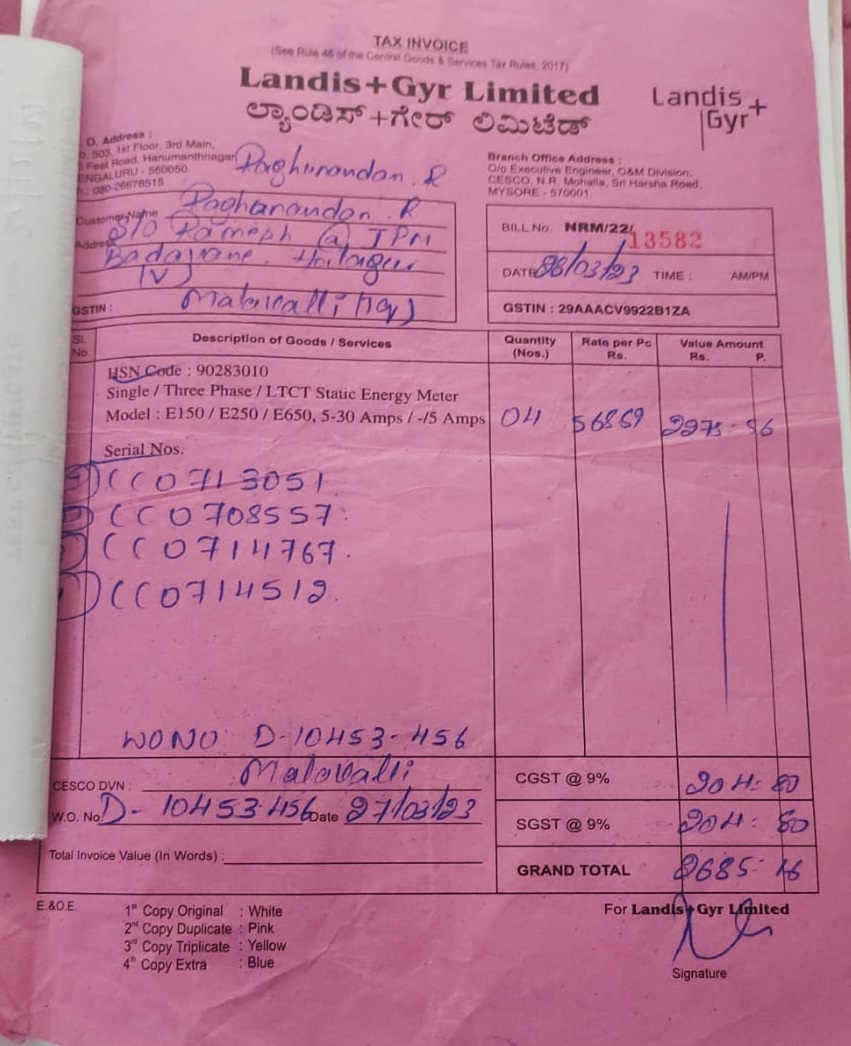 TAX INVOICE
(See Rule 46 of the Central Goods & Services Tax Rules, 2017)
Landis+Gyr Limited
ಲ್ಯಾಂಡಿಸ್+ಗೇರ್ ಲಿಮಿಟೆಡ್
Landis+
Gyr
O. Address :
503, 1st Floor, 3rd Main,
Feet Road, Hanumanthnagar
ENGALURU - 560050.
080-26678515
Raghunandan. R
Branch Office Address :
O/o Executive Engineer, O&M Division,
CESCO, N.R. Mohalla, Sri Harsha Road,
MYSORE - 570001.
Customer Name Raghanandan. R
Address S/O Ramesh @ JPM
(V)
GSTIN : Malavalli
BILL No. NRM/22/ 13582
DATE /03/23 TIME : AM/PM
GSTIN : 29AAACV9922B1ZA
Sl. No. Description of Goods / Services Quantity (Nos.) Rate per Pc Rs. Value Amount Rs. P.
HSN Code : 90283010
Single / Three Phase / LTCT Static Energy Meter
Model : E150 / E250 / E650, 5-30 Amps / -/5 Amps 04 56869
Serial Nos.
CC0713051
CC0708557
CC0714767
CC0714512
WO NO D-10453-456
CESCO DVN : Malavalli
W.O. No D- 10453-456 Date 27/03/23
Total Invoice Value (In Words) :
CGST @ 9% 204: 80
SGST @ 9% 204: 80
GRAND TOTAL 2685- 16
E.&O.E.
1st Copy Original : White
2nd Copy Duplicate : Pink
3rd Copy Triplicate : Yellow
4th Copy Extra : Blue
For Landis+Gyr Limited
Signature